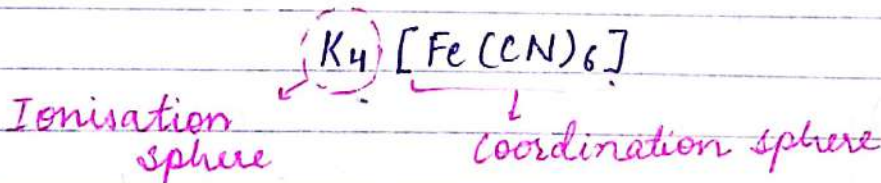 K4 [Fe(CN)6]
Ionisation sphere
coordination sphere